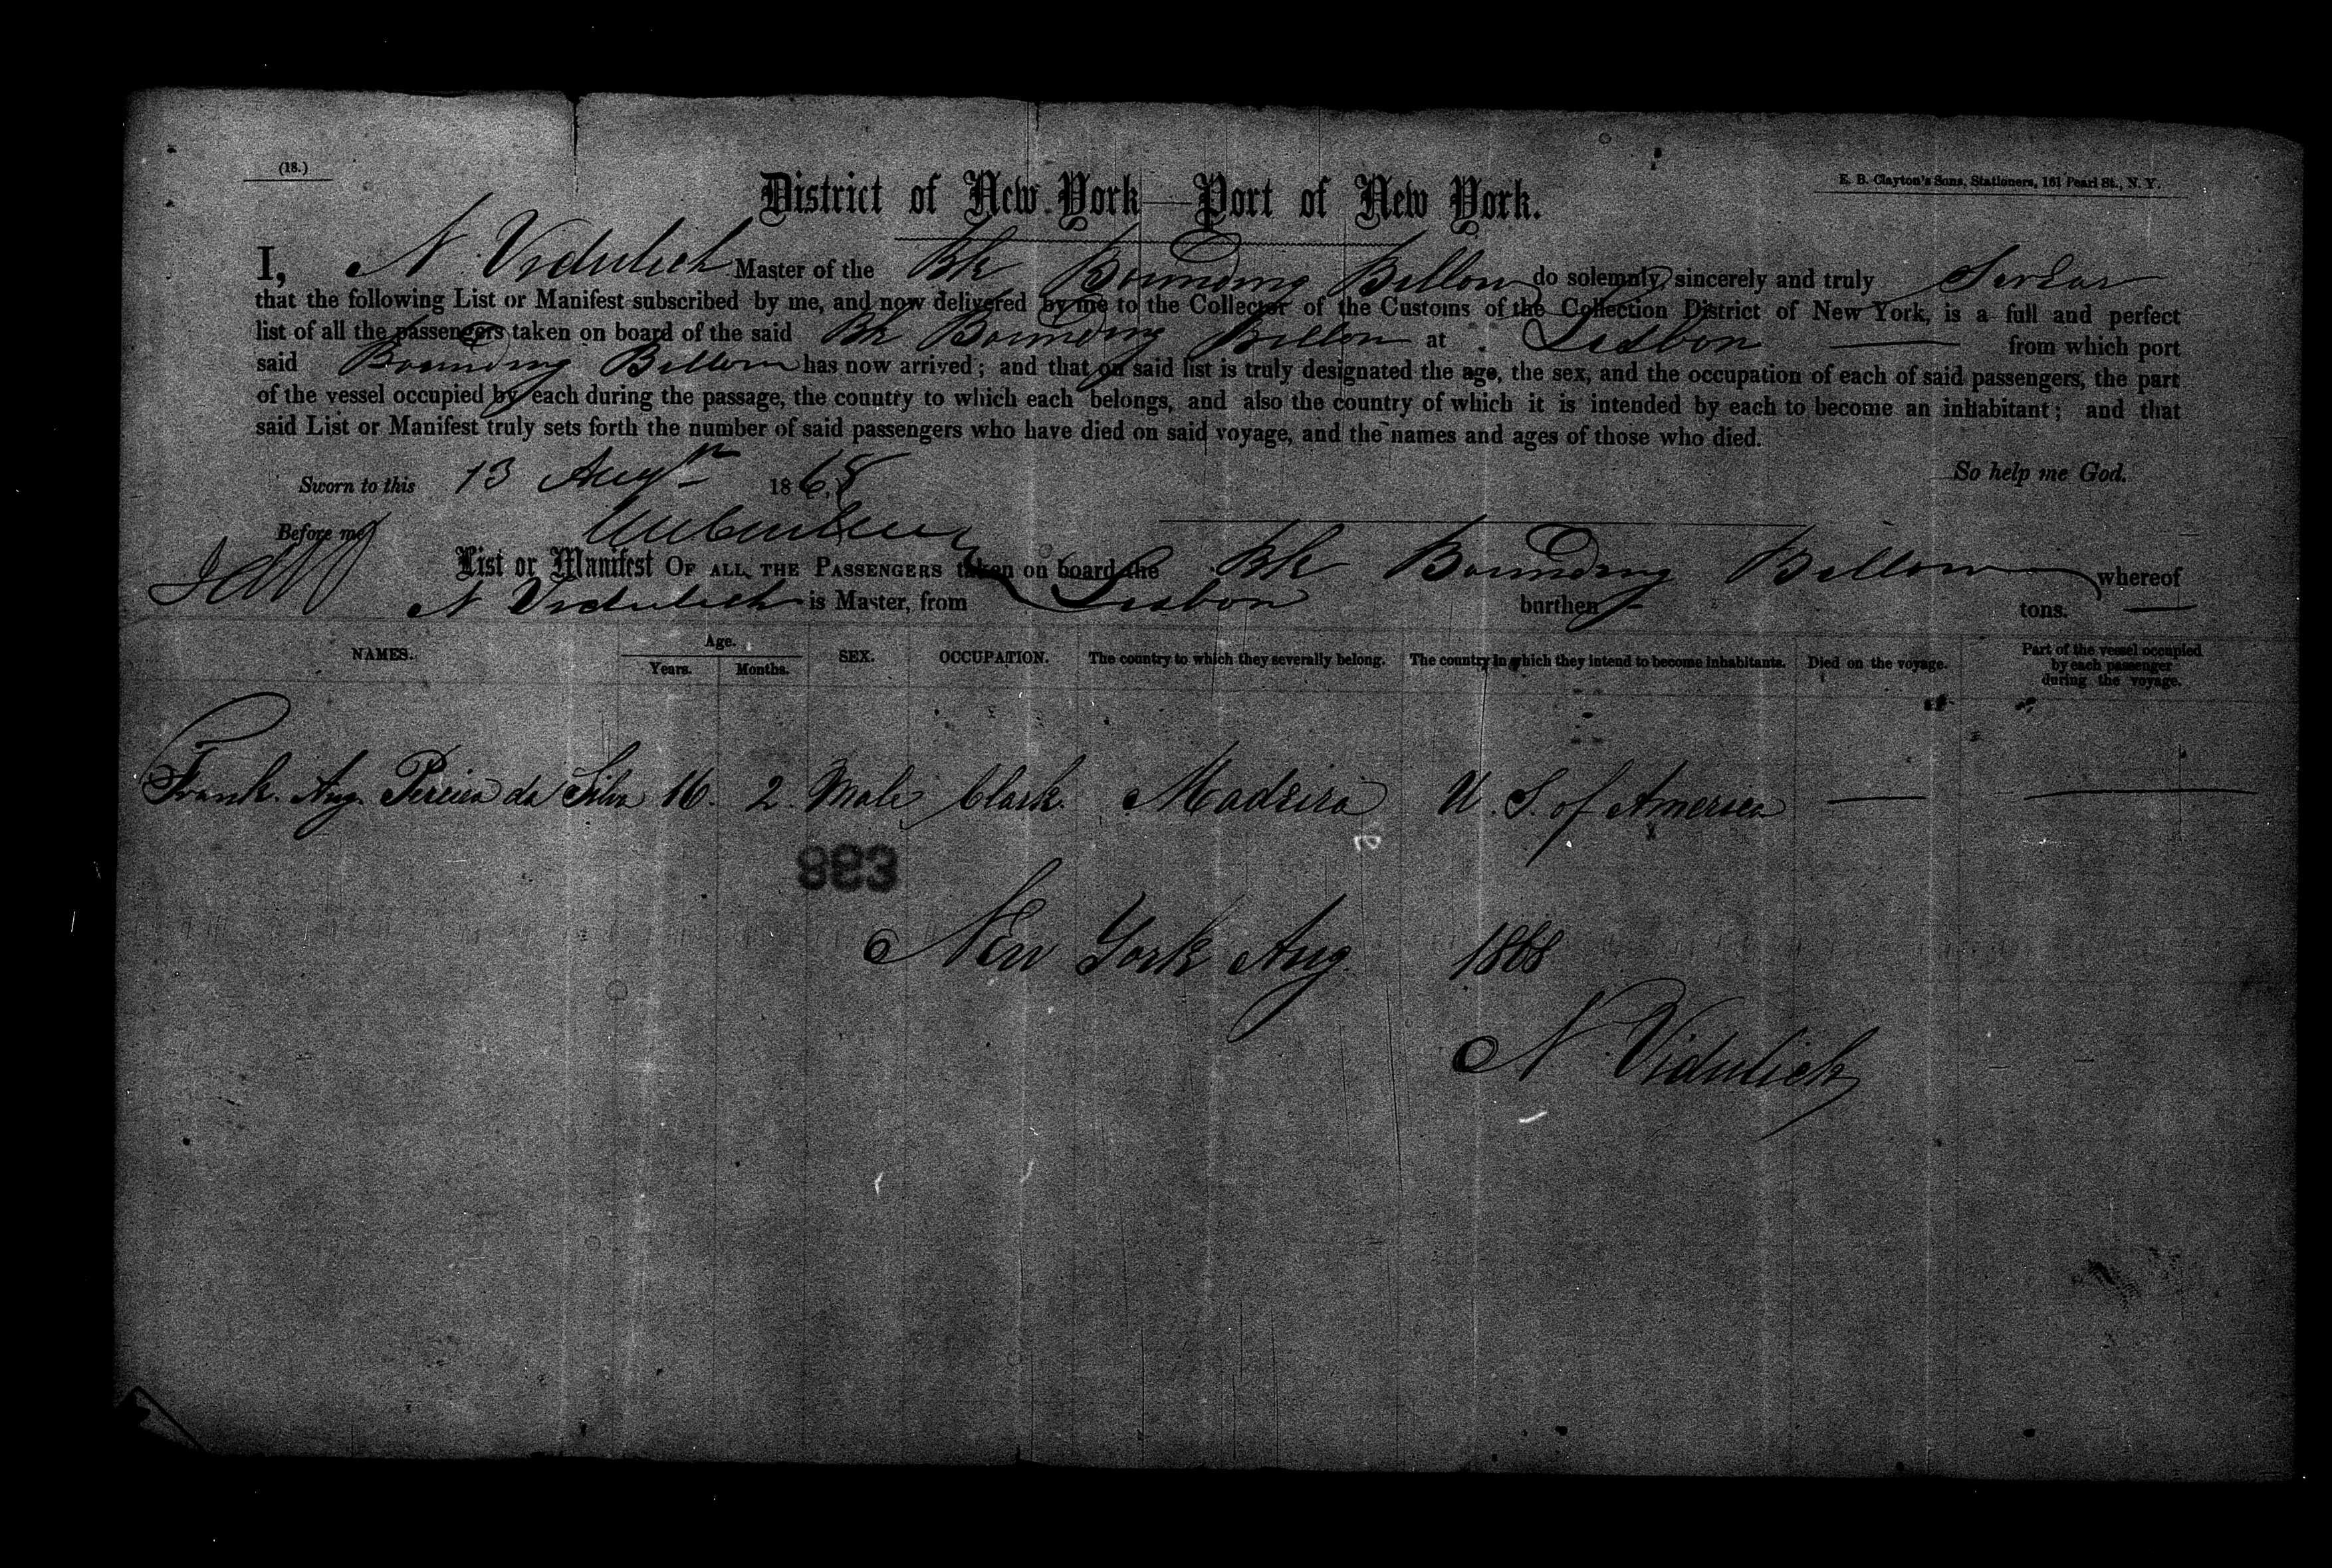 (18.)
E. B. Clayton's Sons, Stationers, 161 Pearl St., N. Y.
District of New York—Port of New York.
I, N. Vidulich Master of the Bk Bounding Billow do solemnly, sincerely and truly swear
that the following List or Manifest subscribed by me, and now delivered by me to the Collector of the Customs of the Collection District of New York, is a full and perfect
list of all the passengers taken on board of the said Bk Bounding Billow at Lisbon — from which port
said Bounding Billow has now arrived; and that on said list is truly designated the age, the sex, and the occupation of each of said passengers, the part
of the vessel occupied by each during the passage, the country to which each belongs, and also the country of which it is intended by each to become an inhabitant; and that
said List or Manifest truly sets forth the number of said passengers who have died on said voyage, and the names and ages of those who died.
Sworn to this 13 Augt 1868 So help me God.
Before me
List or Manifest OF ALL THE PASSENGERS taken on board the Bk Bounding Billow whereof
N Vidulich is Master, from Lisbon burthen tons. —
NAMES. Age. Years. Months. SEX. OCCUPATION. The country to which they severally belong. The country in which they intend to become inhabitants. Died on the voyage. Part of the vessel occupied by each passenger during the voyage.
Frank. Aug. Pereira da Silva 16. 2. Male Clark. Madeira U. S. of America — —
883
New York Aug. 1868
N. Vidulich